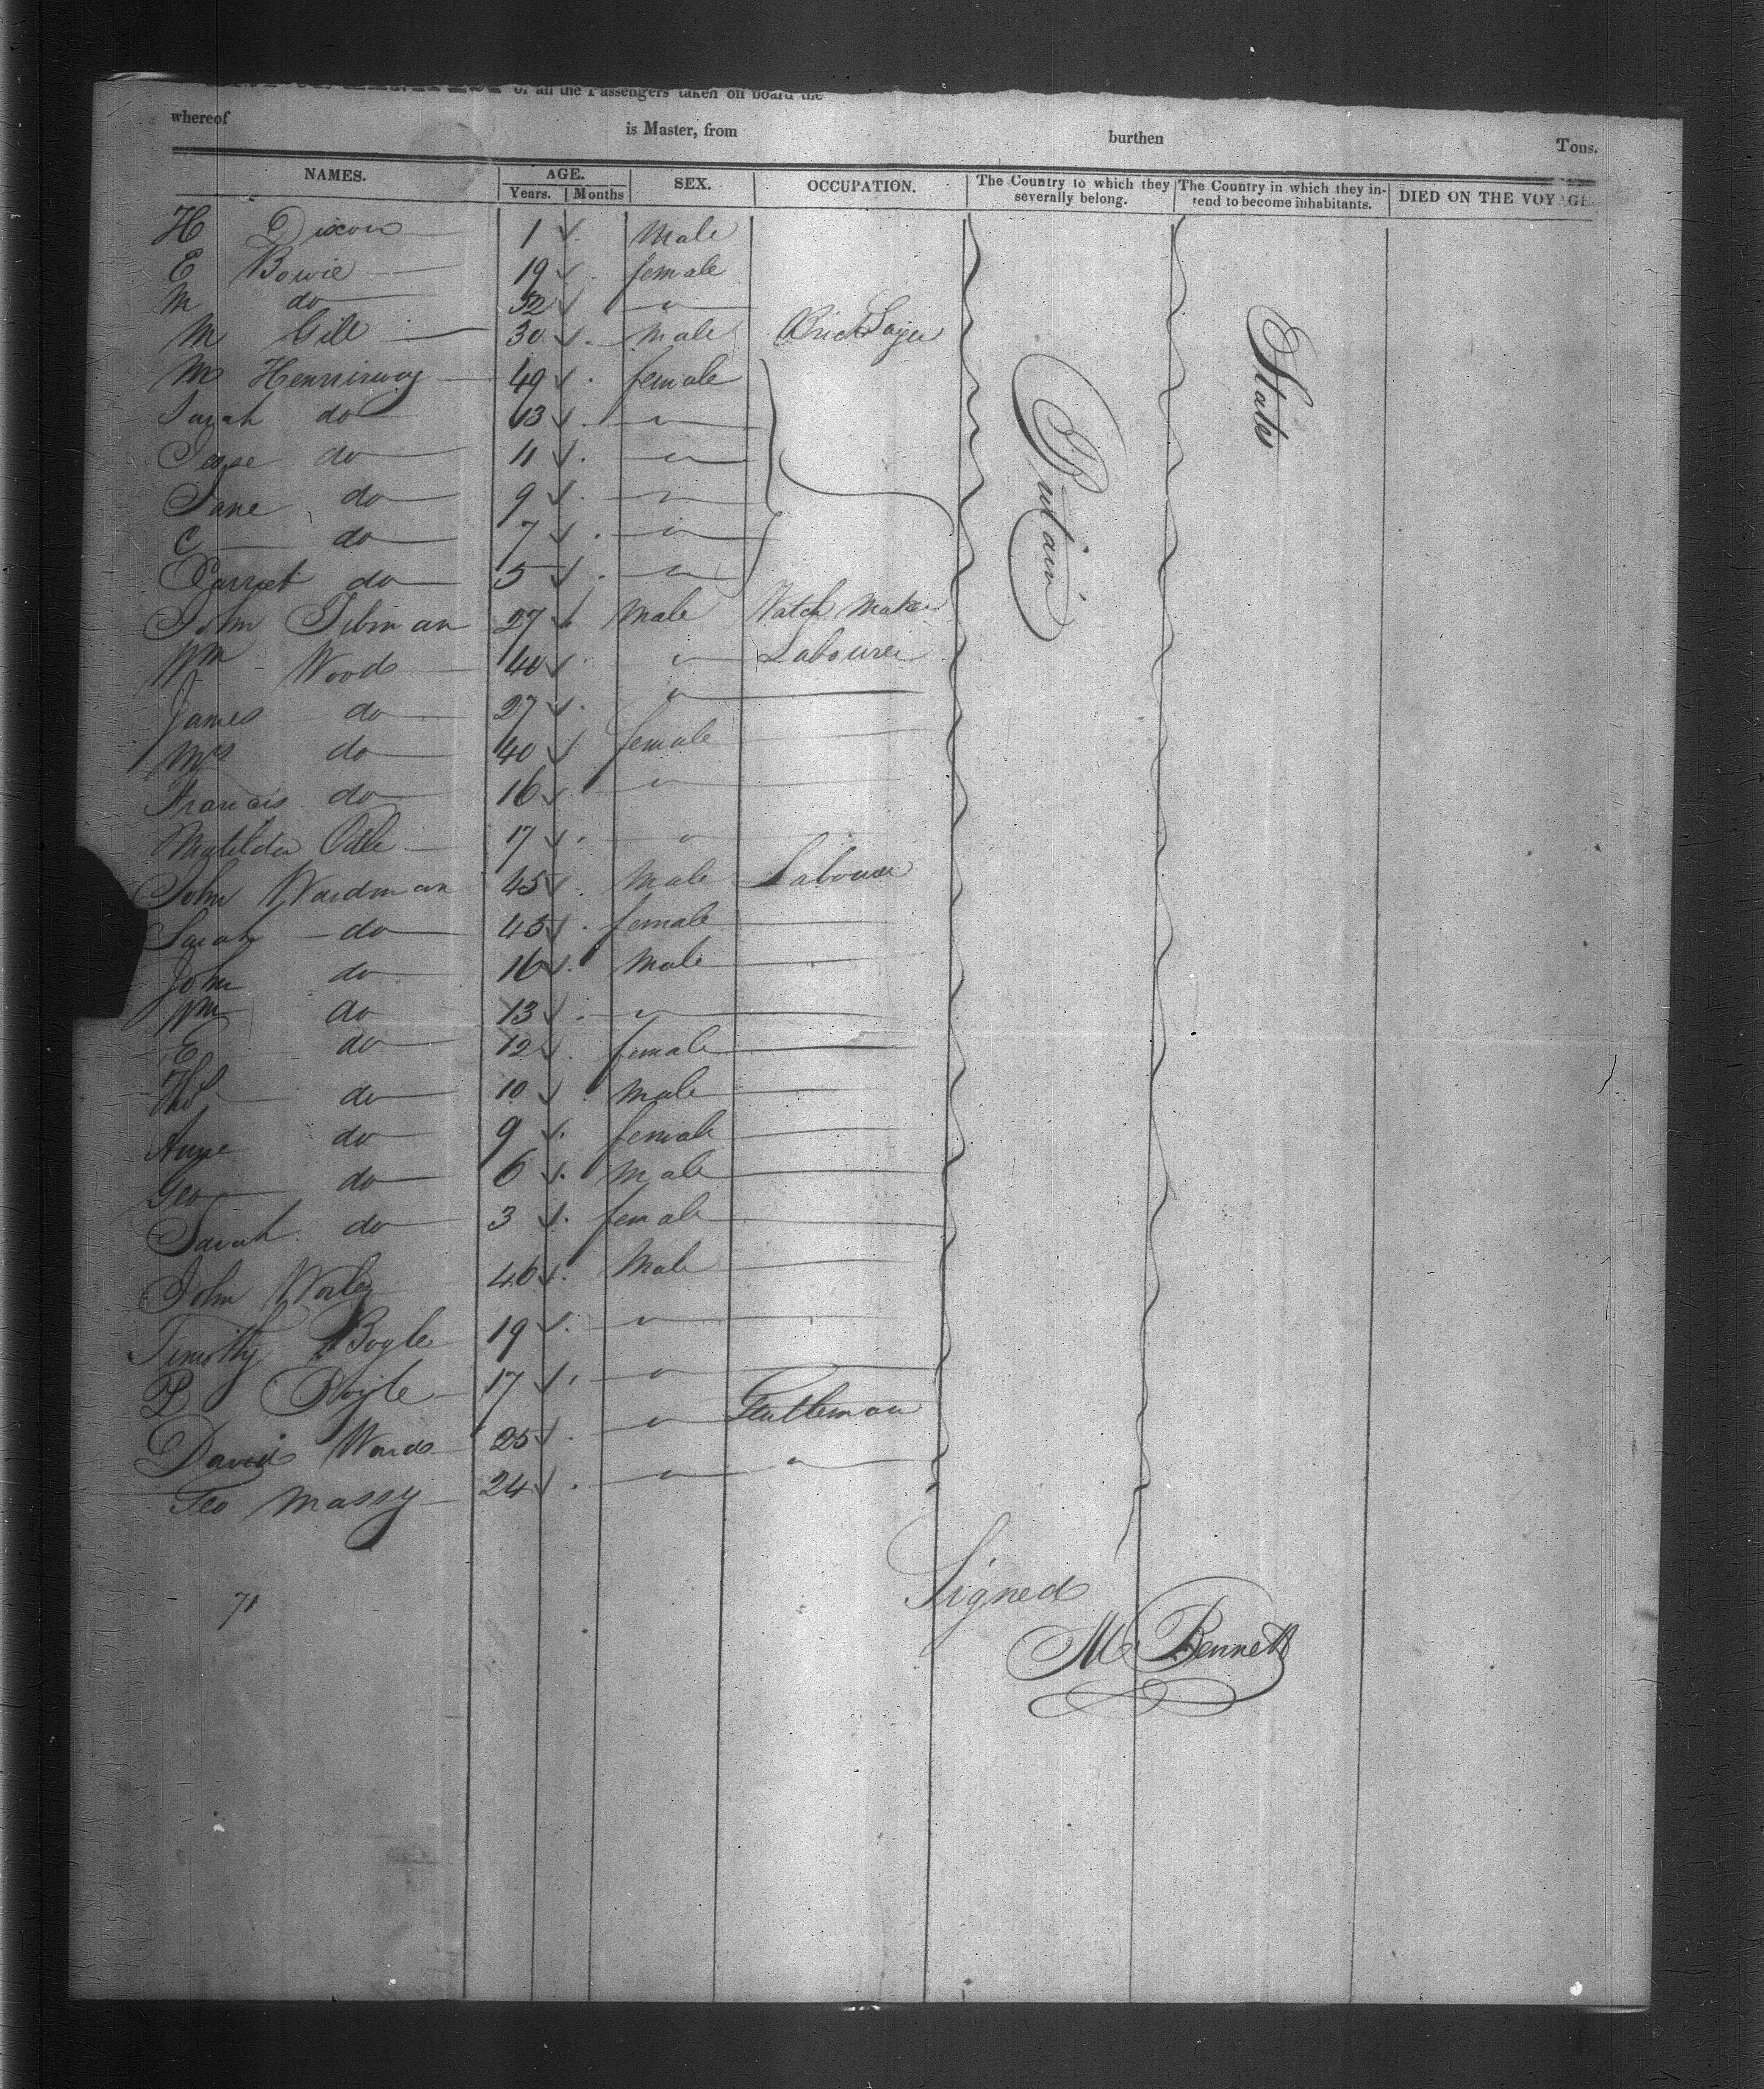 of all the Passengers taken on board the
whereof is Master, from burthen Tons.
NAMES. AGE. Years. Months SEX. OCCUPATION. The Country to which they severally belong. The Country in which they intend to become inhabitants. DIED ON THE VOYAGE.
H Dixon 1 Male
E Bowie 19 female
M do 32 "
M Gill 30 Male Brick Layer
M Henniway 49 female
Sarah do 13 "
Jesse do 11 "
Jane do 9 "
C do 7 "
Harriet do 5 "
John Tibman 27 Male Watch Maker
Wm Wood 40 " Labourer
James do 27 "
Mrs do 40 female
Francis do 16 "
Matilda 17 "
John Wardman 45 Male Labourer
Sarah do 45 female
John do 16 Male
Wm do 13 "
E do 12 female
Thos do 10 Male
Anne do 9 female
Geo do 6 Male
Sarah do 3 female
John Worley 46 Male
Timothy Boyle 19 "
P Boyle 17 "
David Ward 25 " Gentleman
Geo Massy 24 " "
Britain
States
Signed
M Bennett
71